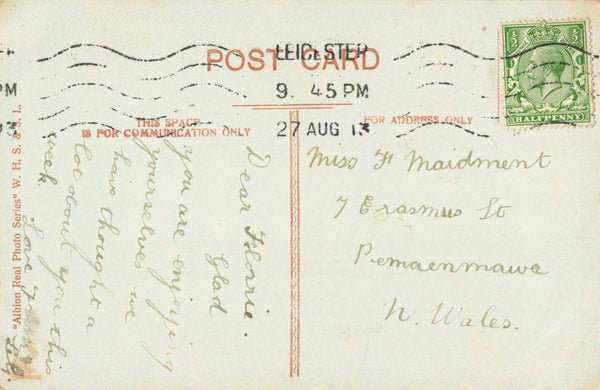 LEICESTER
9. 45 PM
27 AUG 13
PM
13
POST CARD
THIS SPACE
IS FOR COMMUNICATION ONLY
FOR ADDRESS ONLY
1/2 1/2
HALFPENNY
Dear Florrie.
Glad
you are enjoying
yourselves we
have thought a
lot about you this
week Love
Miss F Maidment
7 Erasmus St
Penmaenmawr
N. Wales.
"Albion Real Photo Series" W. H. S. & S. L.